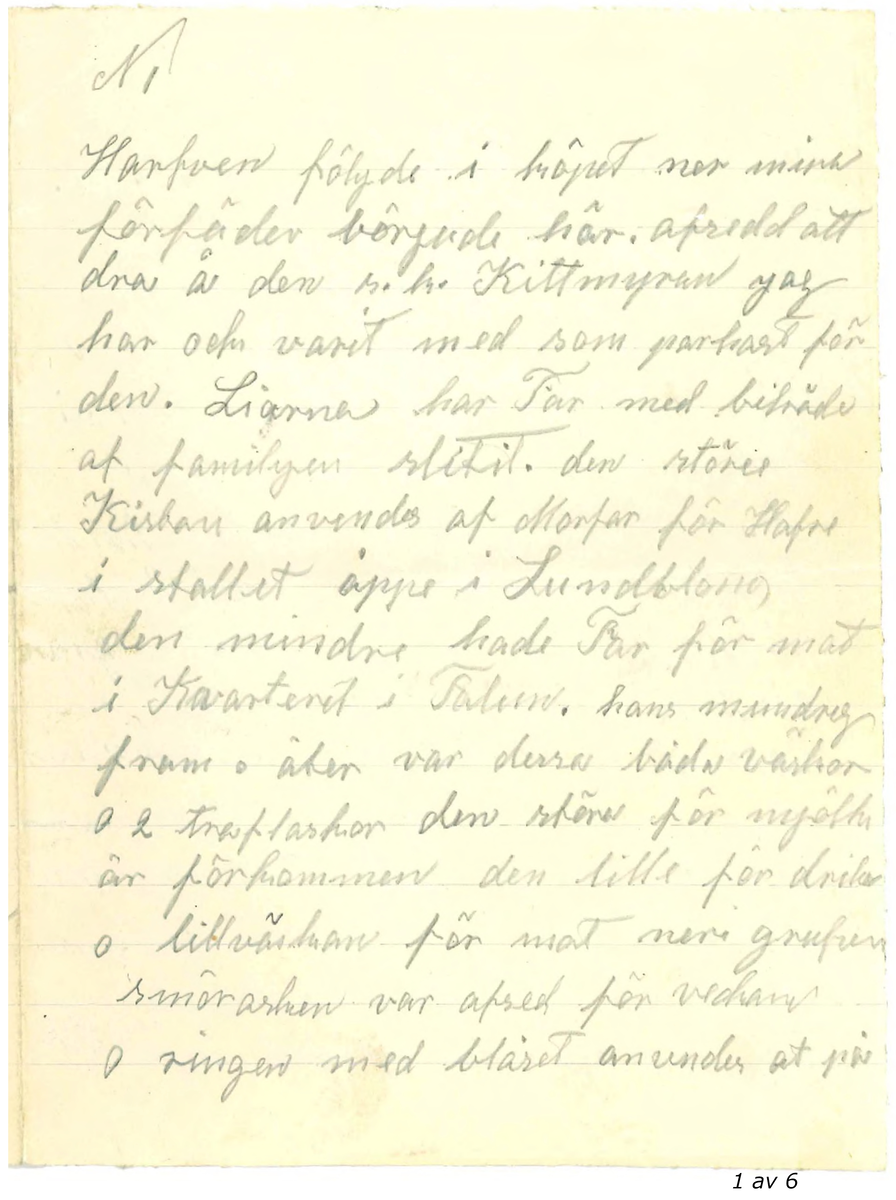 N 1
Harfven följde i köpet ner mina
förfäder börjude här. afsedd att
dra å den s.k. Kittmyran jag
har och varit med som parhast för
den. Liarna har Far med biträde
af familjen slitit. den större
Kisban anvendes af Morfar för Hafre
i stallet åppe i
den mindre hade Far för mat
i Kvarteret i Falun. hans mundreg
fram o åter var dessa båda väskor
o 2 träflaskor den störe för mjölk
är förkommen den lille för
o lillväskan för mat neri grufven
smörasken var afsed för veckan
o ringen med blåset anvendes at på
1 av 6